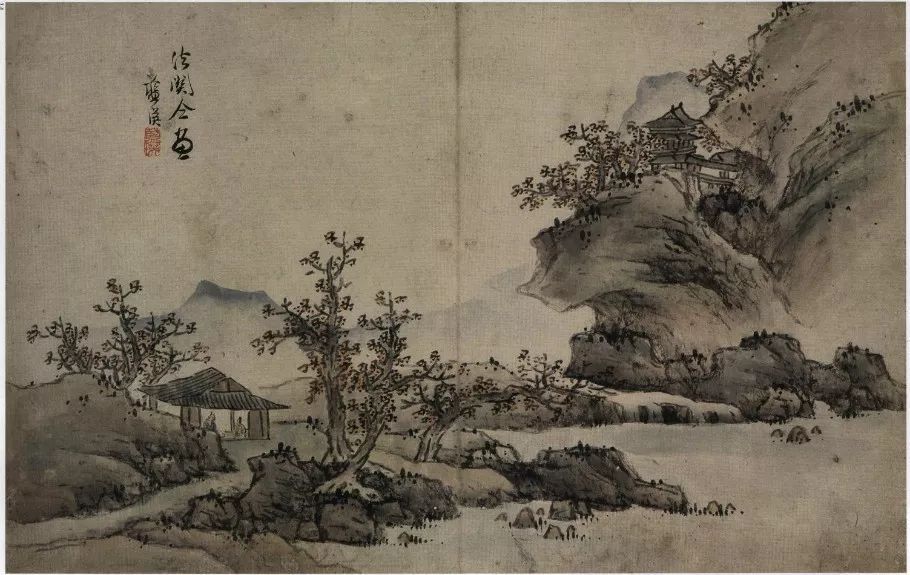 法關仝畫
藍瑛